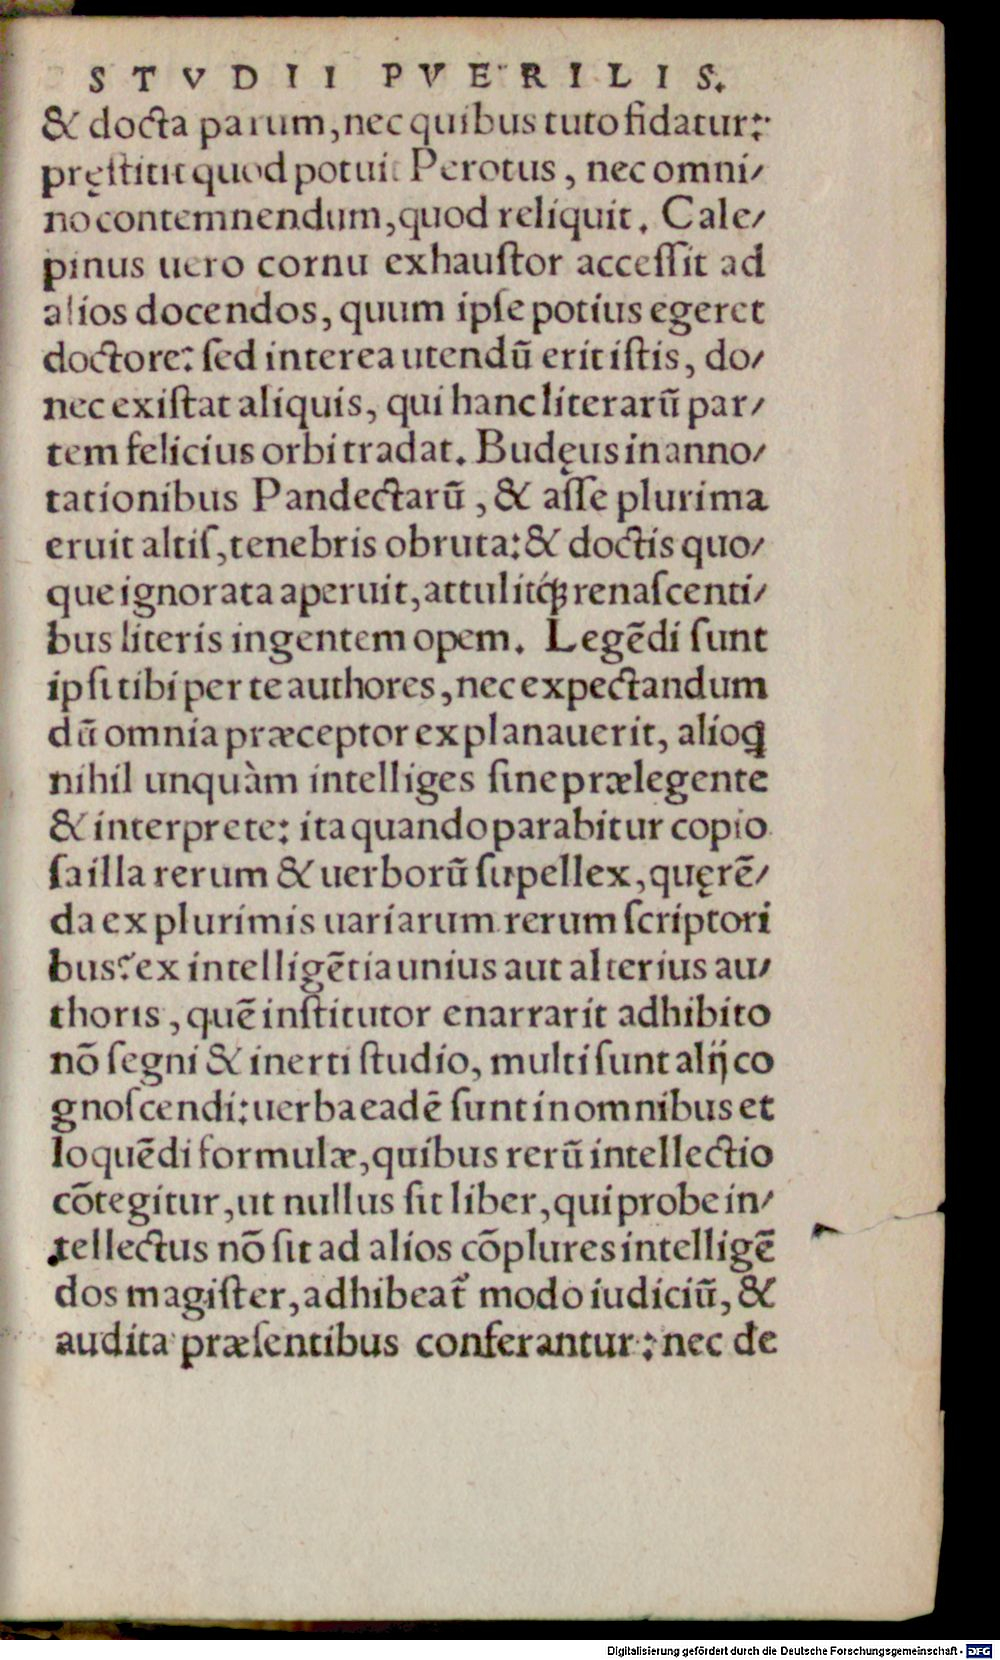 STVDII PVERILIS.
& docta parum, nec quibus tuto fidatur:
pręſtitit quod potuit Perotus, nec omni/
no contemnendum, quod reliquit. Cale/
pinus uero cornu exhauſtor acceſſit ad
alios docendos, quum ipſe potius egeret
doctore: ſed interea utendū erit iſtis, do/
nec exiſtat aliquis, qui hanc literarū par/
tem felicius orbi tradat. Budęus in anno/
tationibus Pandectarū, & aſſe plurima
eruit altiſ, tenebris obruta: & doctis quo/
que ignorata aperuit, attulitq́ꝫ renaſcenti/
bus literis ingentem opem. Legēdi ſunt
ipſi tibi per te authores, nec expectandum
dū omnia præceptor explanauerit, alioq
nihil unquàm intelliges ſine prælegente
& interprete: ita quando parabitur copio
ſa illa rerum & uerborū ſupellex, quęrē/
da ex plurimis uariarum rerum ſcriptori
bus? ex intelligētia unius aut alterius au/
thoris, quē inſtitutor enarrarit adhibito
nō ſegni & inerti ſtudio, multi ſunt alij co
gnoſcendi: uerba eadē ſunt in omnibus et
loquēdi formulæ, quibus rerū intellectio
cōtegitur, ut nullus ſit liber, qui probe in/
tellectus nō ſit ad alios cōplures intelligē
dos magiſter, adhibeat᷑ modo iudiciū, &
audita præſentibus conferantur: nec de
Digitalisierung gefördert durch die Deutsche Forschungsgemeinschaft - DFG